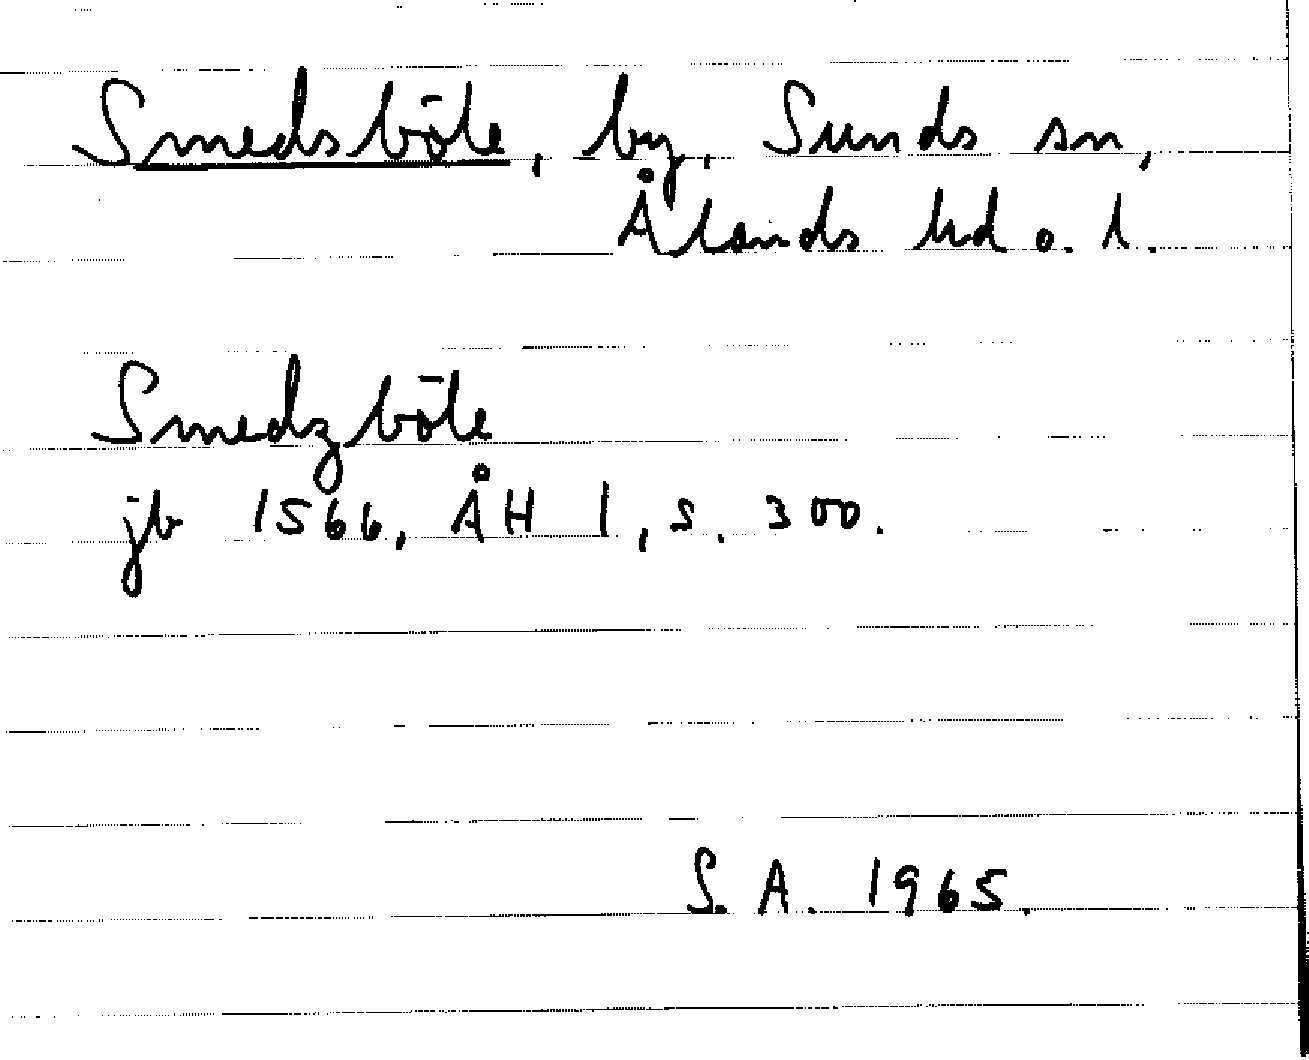 Smedsböle, by, Sunds sn,
Ålands hd o. l.
Smedzböle
jb 1566, ÅH 1, s. 300.
S. A. 1965.